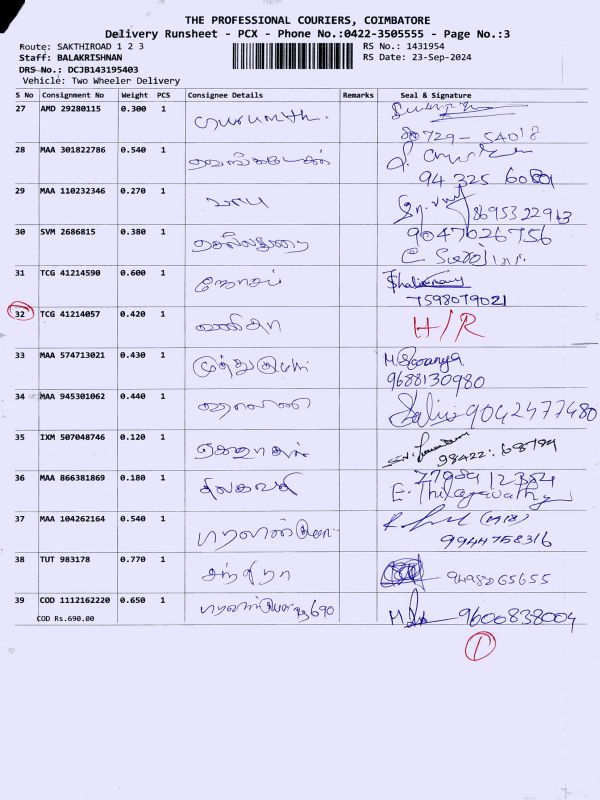 THE PROFESSIONAL COURIERS, COIMBATORE
Delivery Runsheet - PCX - Phone No.:0422-3505555 - Page No.:3
Route: SAKTHIROAD 1 2 3
RS No.: 1431954
Staff: BALAKRISHNAN
RS Date: 23-Sep-2024
DRS No.: DCJB143195403
Vehicle: Two Wheeler Delivery
S No Consignment No Weight PCS Consignee Details Remarks Seal & Signature
27 AMD 29280115 0.300 1
80729-54018
28 MAA 301822786 0.540 1 வெங்கடேசன்
94 325 60
29 MAA 110232346 0.270 1
8695322943
30 SVM 2686815 0.380 1 செல்லதுரை 9047026756
31 TCG 41214590 0.600 1 ஜோசப்
7598079021
32 TCG 41214057 0.420 1 வனிதா H/R
33 MAA 574713021 0.430 1 M Sooranya
9688130980
34 MAA 945301062 0.440 1 9042477480
35 IXM 507048746 0.120 1
98422:68794
36 MAA 866381869 0.180 1 திலகவதி 77989 12384
E. Thilagavathy
37 MAA 104262164 0.540 1
9944758316
38 TUT 983178 0.770 1 சந்திரா 9498265655
39 COD 1112162220 0.650 1 ரூ690 9600838004
COD Rs.690.00
1